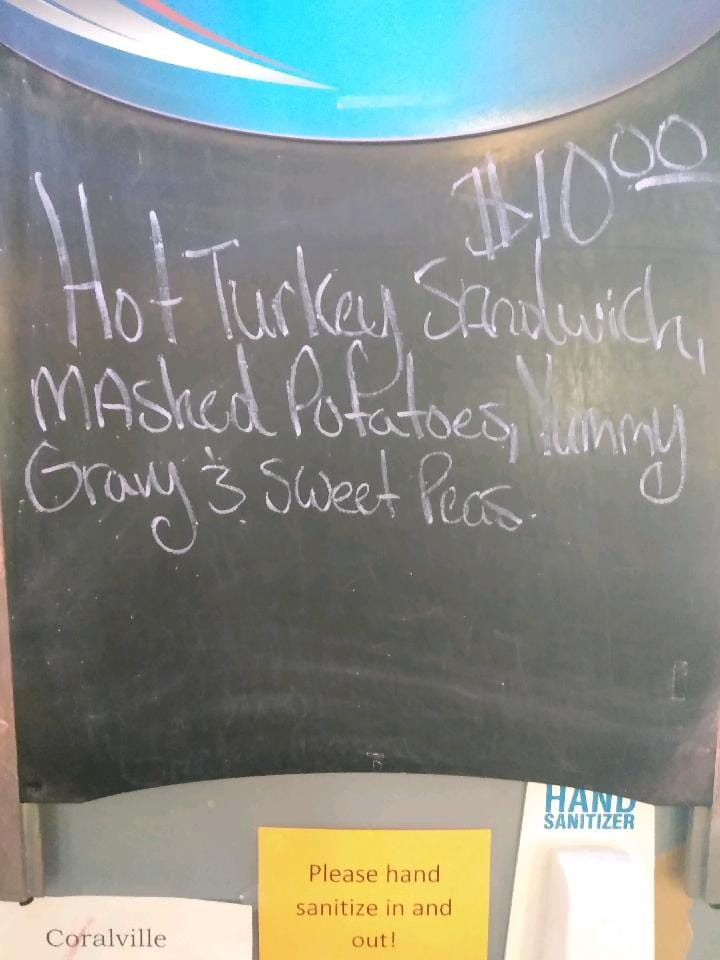 $10.00
Hot Turkey Sandwich,
MAshed Potatoes, Yummy
Gravy & Sweet Peas.
HAND
SANITIZER
Please hand
sanitize in and
out!
Coralville